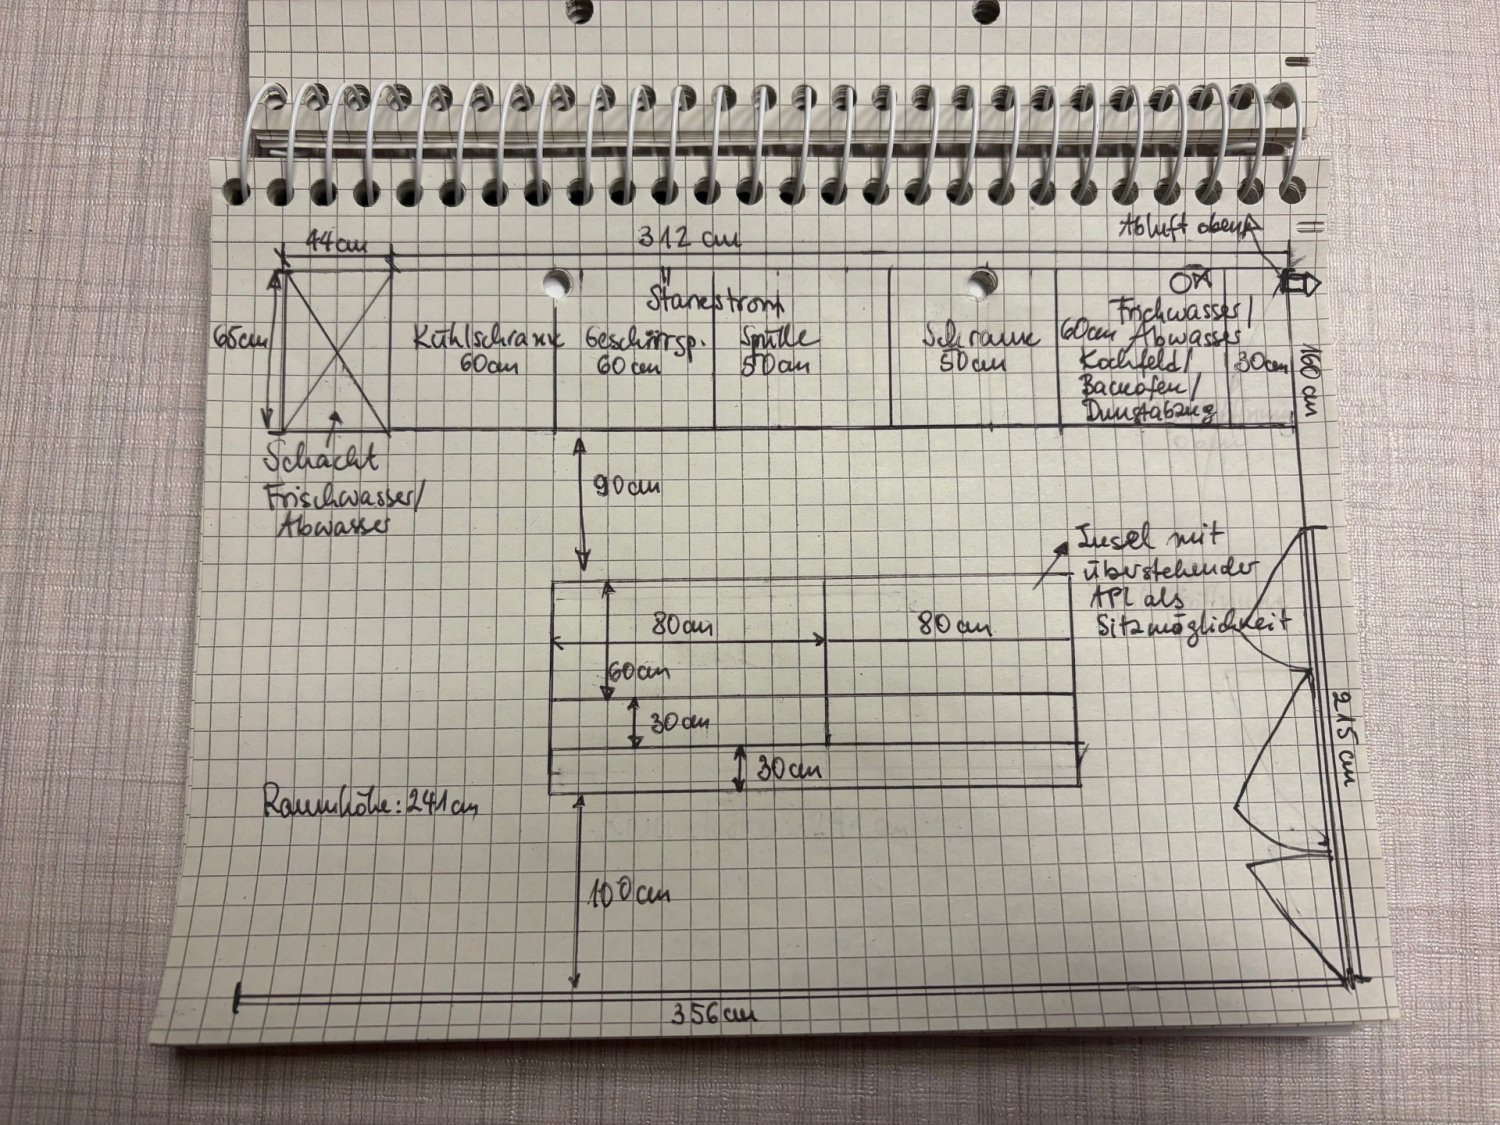 Abluft oben
44cm
312 cm
Starkstrom
Frischwasser/
Abwasser
65cm
Kühlschrank
60cm
Geschirrsp.
60cm
Spülle
50cm
Schrank
50cm
60cm
Kochfeld/
Backofen/
Dunstabzug
30cm
160 cm
Schacht
Frischwasser/
Abwasser
90cm
Insel mit
überstehender
APL als
Sitzmöglichkeit
80cm
80cm
60cm
30cm
30cm
215 cm
Raumhöhe: 241cm
100cm
356cm